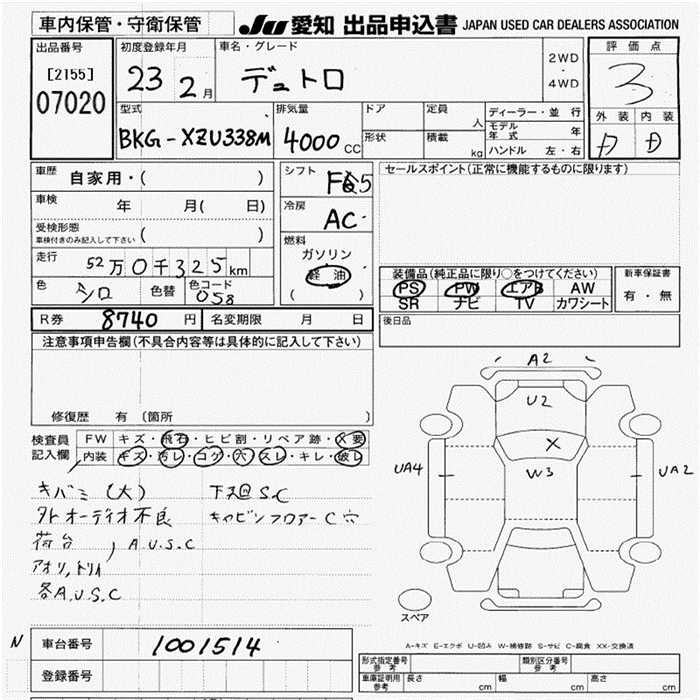 車内保管・守衛保管
JU 愛知 出品申込書 JAPAN USED CAR DEALERS ASSOCIATION
出品番号 [2155] 07020
初度登録年月 23 2月
車名・グレード デュトロ
2WD・4WD
評価点 3
外装 内装
D D
型式 BKG-XZU338M
排気量 4000cc
ドア
形状
定員 人
積載 kg
ディーラー・並行
モデル年式 年
ハンドル 左・右
車歴 自家用・( )
車検 年 月( 日)
受検形態 車検付きのみ記入して下さい ( )
走行 52万0千325km
色 シロ 色替 色コード 058
シフト F5
冷房 AC
燃料 ガソリン 軽油 ( )
セールスポイント(正常に機能するものに限ります)
装備品(純正品に限り○をつけてください)
PS PW エアB AW
SR ナビ TV カワシート
新車保証書 有・無
R券 8740円 名変期限 月 日
後日品
注意事項申告欄(不具合内容等は具体的に記入して下さい)
修復歴 有 (箇所 )
検査員記入欄
FW キズ・飛石・ヒビ割・リペア跡・X要
内装 キズ・汚レ・コゲ・穴・スレ・キレ・破レ
キバミ(大) 下廻S.C
外オーディオ不良 キャビンフロアーC穴
荷台 ) A.U.S.C
アオリ,トリイ
各A.U.S.C
A2
U2
X
W3
UA4
UA2
スペア
A-キズ E-エクボ U-凹み W-補修跡 S-サビ C-腐食 XX-交換済
N 車台番号 1001514
登録番号
型式指定番号 参考 類別区分番号 参考
車庫証明用 参考 長さ cm 幅 cm 高さ cm